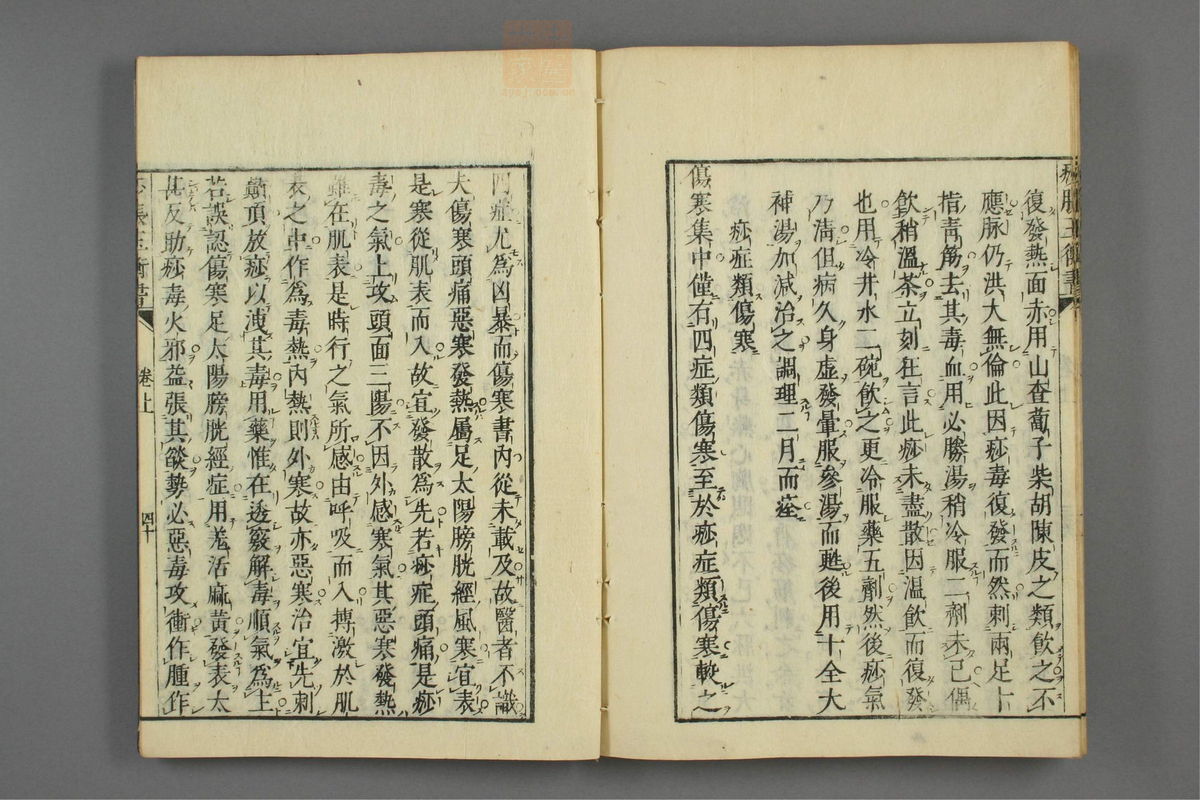 復發熱面赤用山查蔔子柴胡陳皮之類飲之不
應脉仍洪大無倫此因痧毒復發而然刺兩足十
指青筋去其毒血用必勝湯稍冷服二劑未已偶
飲稍溫茶立刻狂言此痧未盡散因温飲而復發
也用冷井水二碗飲之更冷服藥五劑然後痧氣
乃清但病久身虚發暈服參湯而甦後用十全大
補湯加減治之調理二月而痊
痧症類傷寒
傷寒集中僅有四症類傷寒至於痧症類傷寒較之
四症尤為凶暴而傷寒書內從未載及故醫者不識
夫傷寒頭痛惡寒發熱屬足太陽膀胱經風寒宜表
是寒從肌表而入故宜發散為先若痧症頭痛是痧
毒之氣上攻頭面三陽不因外感寒氣其惡寒發熱
雖在肌表是時行之氣所感由呼吸而入搏激於肌
表之中作為毒熱內熱則外寒故亦惡寒治宜先刺
巔頂放痧以洩其毒用藥惟在透竅解毒順氣為主
若誤認傷寒足太陽膀胱經症用羗活麻黃發表太
甚反助痧毒火邪益張其燄勢必惡毒攻衝作腫作
卷上
四十